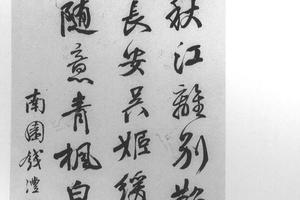 秋江離別難
長安吳姬緩
隨意青楓白
南園錢灃